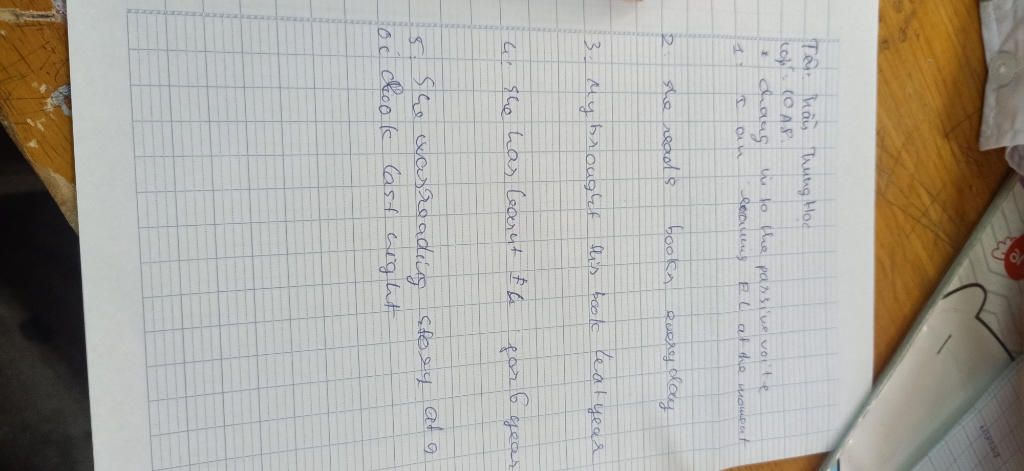 Tên: Trần Trung Học
lớp: 10A8.
* chang in to the passive voice
1. I am learning EL at the moment
2. she reads books everyday
3. My brought this book leat year
4. she has learnt EL for 6 year
5. She was reading story at 9
o'clook last night